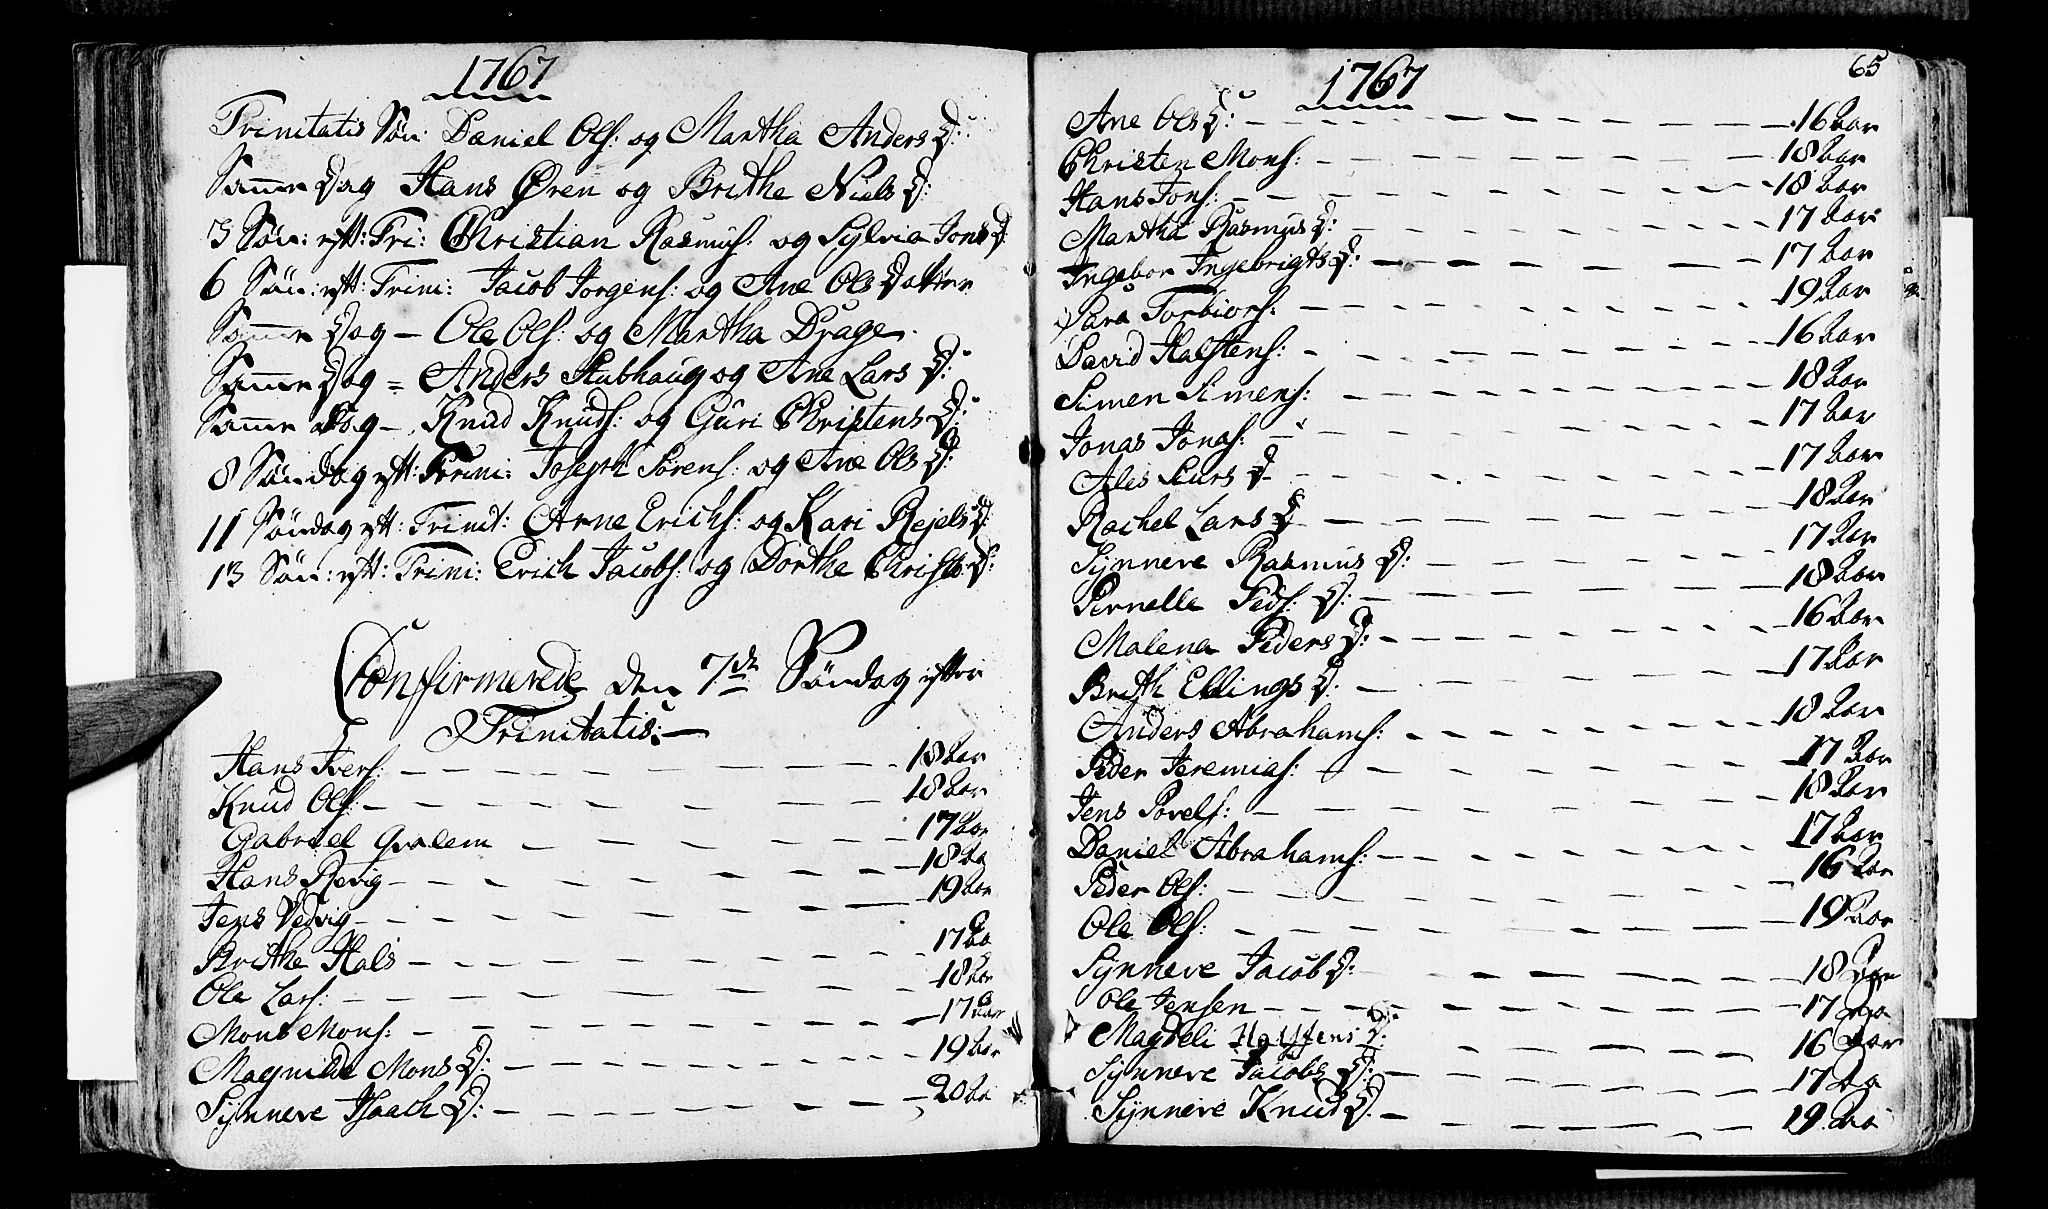 1767
Trinitatis Søn: Daniel Ols: og Martha Anders D:
Samme Dag Hans Øren og Brithe Niels D:
3 Søn: eft: Tri: Christian Rasmus: og Sylvia Jons D:
6 Søn: eft: Trin: Jacob Jorgens: og Ane Ols Datter
Samme Dag – Ole Ols: og Martha Drage.
Samme Dag = Anders Stubhaug og Ane Lars D:
Samme Dag –. Knud Knuds: og Guri Christens D:
8 Søndag eft: Trini: Joseph Sørens: og Ane Ols D:
11 Søndag eft: Trinit: Arne Erichs: og Kari Rejels D:
13 Søn: eft: Trini: Erich Jacobs: og Dorthe Christs: D:
Confirmerede den 7de Søndag efter
Trinitatis: –
Hans Ivers: – 18 Aar
Knud Ols: – 18 Aar
Gabriel Qvalem – 17 Aar
Hans Revig – 18 Aa
Jens Vedvig – 19 Aar
Brithe Hals – 17 Aa
Ole Lars: – 18 Aar
Mons Mons: – 17 Aar
Magnilde Mons D: – 19 Aar
Synneve Isaach D: – 20 Aa
1767
65
Ane Ols D: – 16 Aar
Christen Mons: – 18 Aar
Hans Jons: – 18 Aar
Martha Rasmus D: – 17 Aar
Ingebor Ingebrigts D: – 17 Aar
Torbiors: – 19 Aar
David Halstens: – 16 Aar
Simen Simens: – 18 Aar
Jonas Jonas: – 17 Aar
Ales Lars D – 17 Aar
Rachel Lars D – 18 Aar
Synneve Rasmus D: – 17 Aar
Pernelle Peds: D: – 18 Aar
Malena Peders D: – 16 Aar
Brith Ellings D: – 17 Aar
Anders Abrahams: – 18 Aar
Peder Jeremias: – 17 Aar
Jens Povels: – 18 Aar
Daniel Abrahams: – 17 Aar
Peder Ols: – 16 Aar
Ole Ols: – 19 Aar
Synneve Jacob D: – 18 Aar
Ole Jensen – 17 Aa
Magdeli D: – 16 Aar
Synneve Jacobs D: – 17 Aa
Synneve Knud D: – 19 Aa